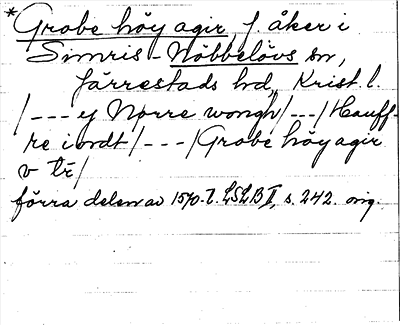 *Grobe höy agir, f. åker i
Simris-Nöbbelövs sn,
Järrestads hd, Krist. l.
/---ej Norre wongh/---/Hauff-
re i ordt/---/Grobe höy agir
v tr̄/
förra delen av 1570-t. LSLB II, s. 242. orig.